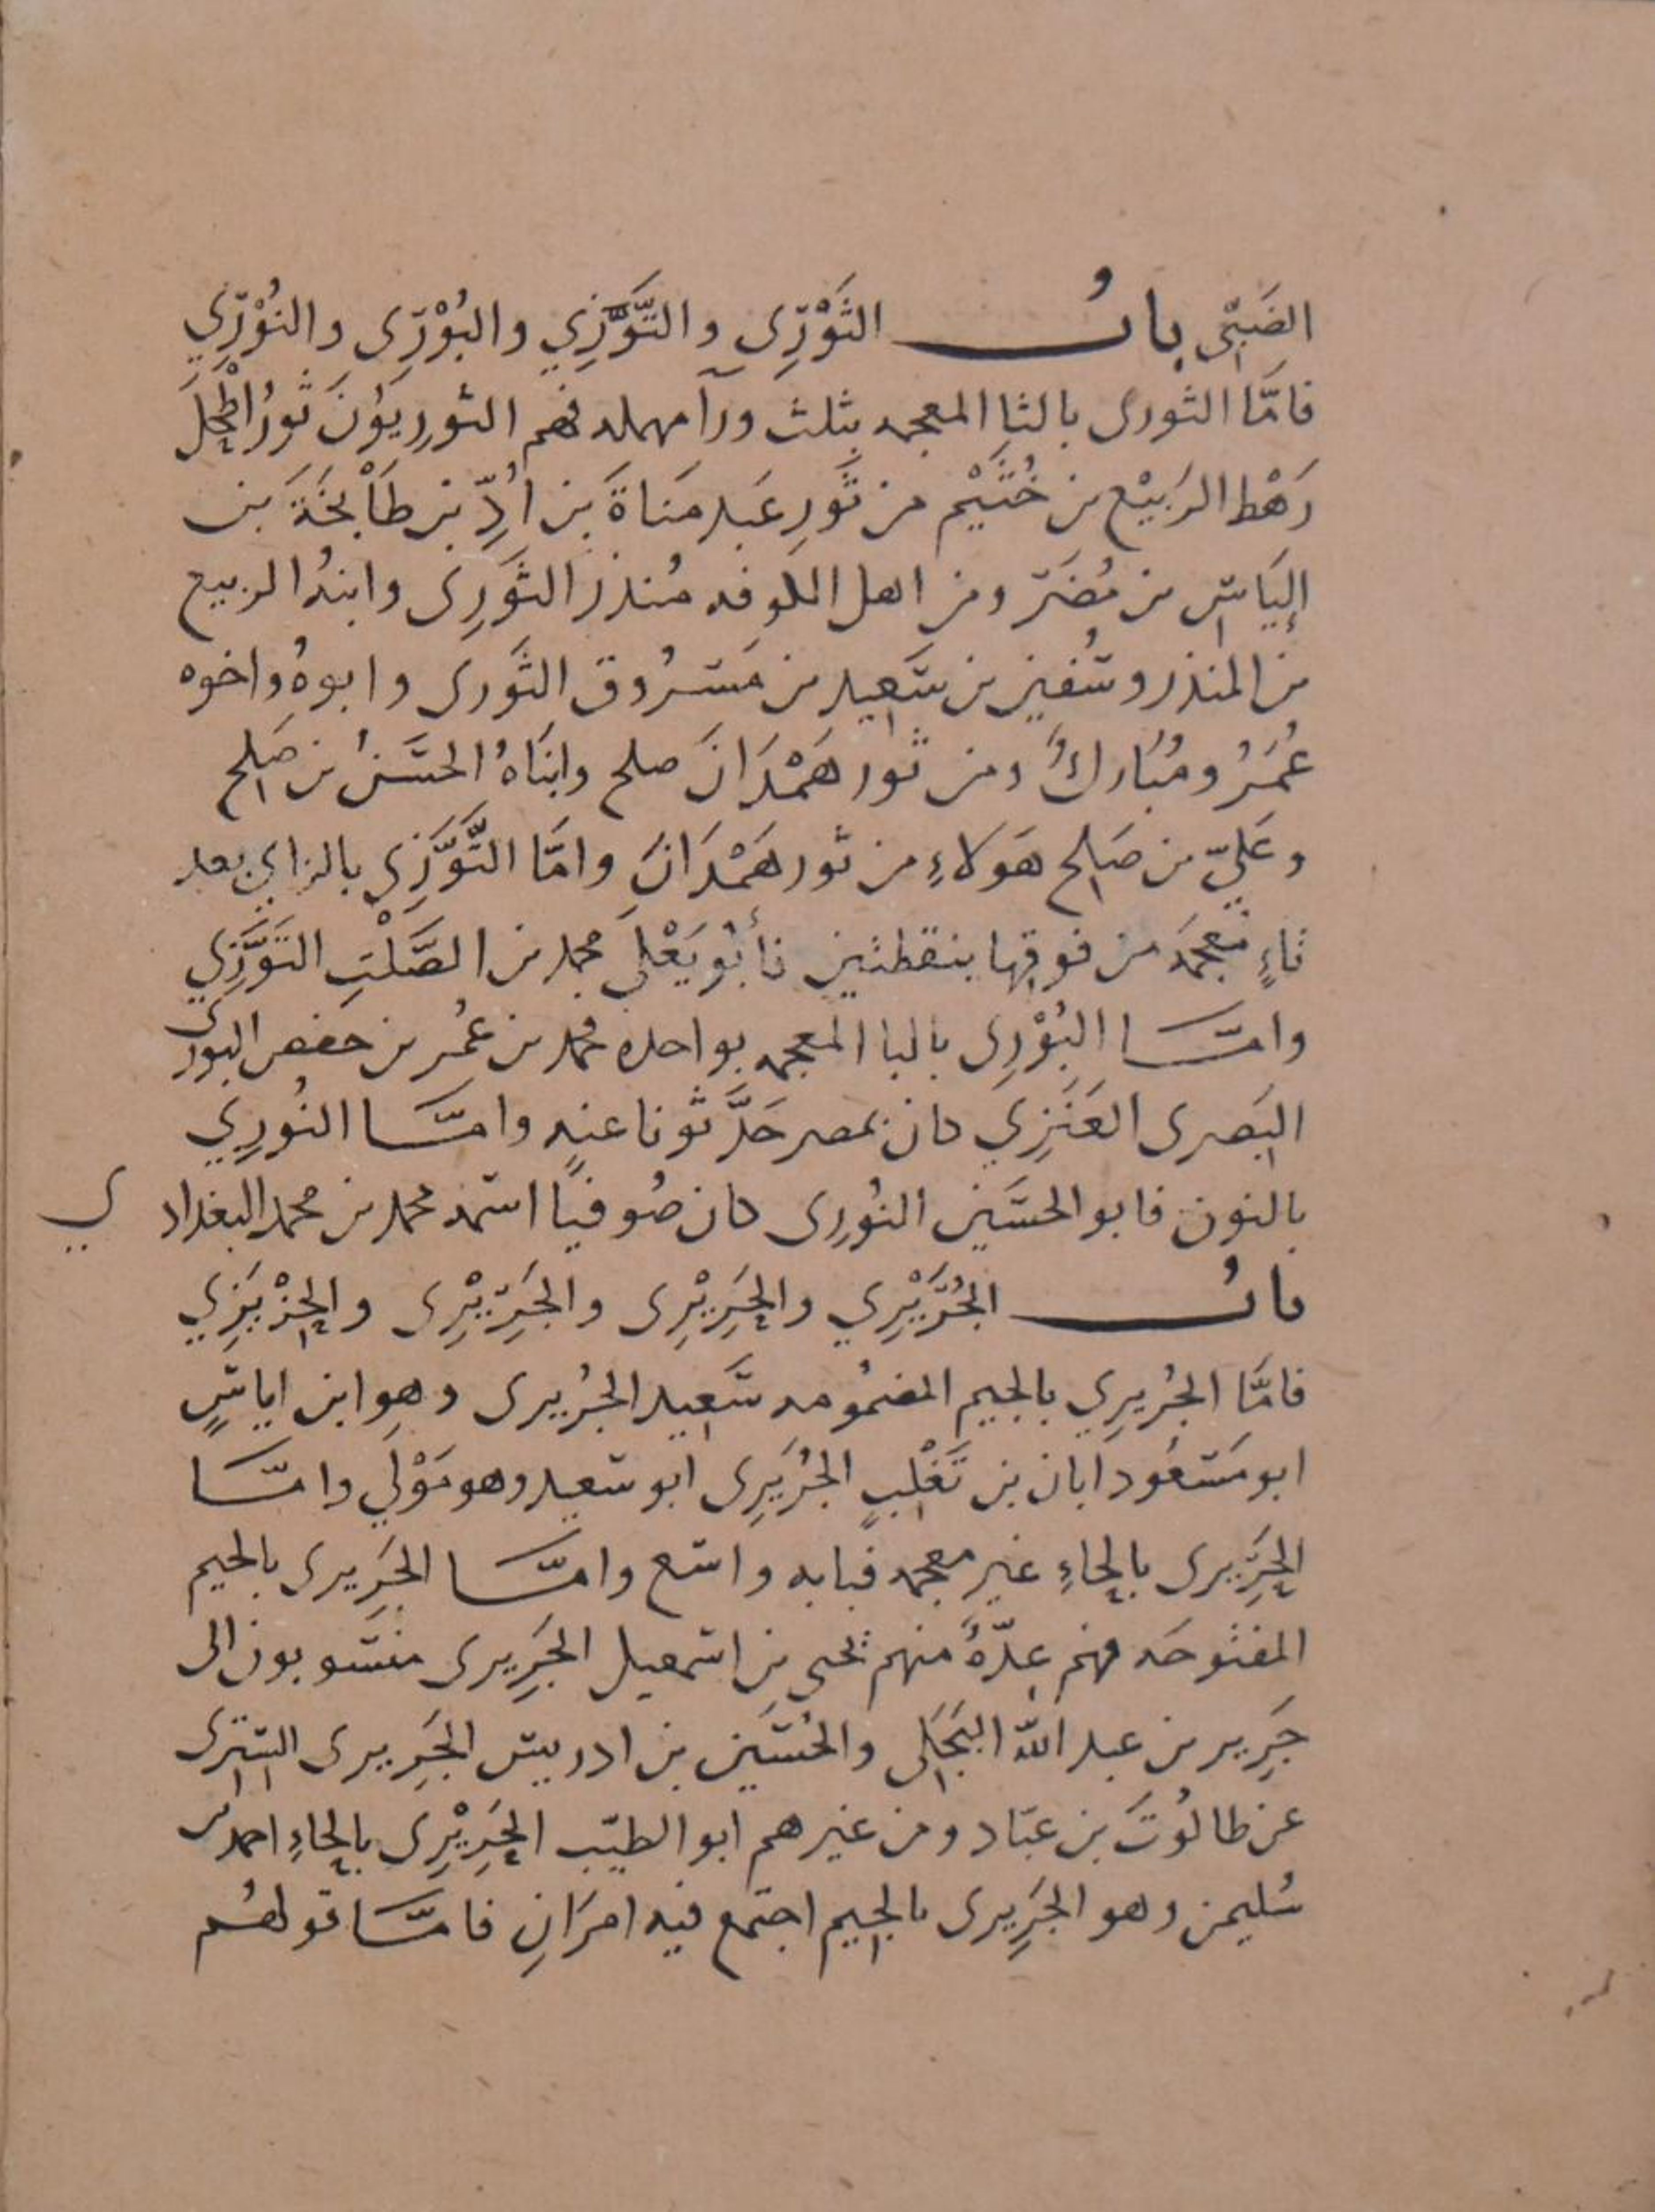 الضَبِّى بابُ الثَوْرِى والتَّوَّزِي والبُوْرِى والنُوْرِي
فامَّا الثورى بالثا المعجمه بثلث ورآ مهمله فهم الثوريوُنَ ثورُ اطْحَلَ
رَهْط الرَبيْع بن خُثَيْم من ثَورِ عَبد مَنَاةَ بن اُدِّ بن طَابْخَةَ بن
إليَاسِ بن مُضَر ومن اهل الكوفه مُنذر الثَوْرِى وابنهُ الربيع
بن المنذر وسُفين بن سَعِيد بن مَسرُوق الثَورى وابوهُ واخوه
عُمَرُ ومُبَاركٌ ومن ثور هَمْدَانَ صلح وابنَاهُ الحسَنُ بن صَلح
وعَليّ بن صَالح هَولاءِ من ثور هَمْدَانَ وامَّا التَّوَّزِى بالزاي بعد
تاءٍ معجمَه من فوقها بنقطتين فأبُو يَعْلَى محمد بن الصَّلْتِ التَوَّزِي
وامَّا البُوْرِى بالبا المعجمه بواحده محمد بن عُمر بن حفص البورى
البَصرى العَنَزِي كان بمصر حَدَّثونا عنه وامَّا النُورِي
بالنون فابو الحسَين النُورِى كان صُوفيًا اسمه محمد بن محمد البغدادي
بابُ الجُرَيْرِي والحَرِيْرِى والجَرِيْرِى والحِزْيَزِي
فامَّا الجُريرِي بالجيم المضمُومه سَعِيد الجُريرى وهو ابن اياسٍ
ابو مسَعُود ابان بن تَغْلِبٍ الجُرَيرِى ابو سعيد وهو مَوْلَي وامَّا
الحَرِيرى بالحاءِ غير معجمه فبابه واسع وامَّا الجَرِيرى بالجيم
المفتوحه فهم عِدّةٌ منهم يحيى بن اسمعيل الجَرِيرى منسوبون الى
جَرِير بن عبد اللّه البَجَلى والحُسَين بن ادريس الجَرِيرى التسترى
عن طالُوتَ بن عبّاد ومن غيرهم ابو الطيّب الحَرِيْرِى بالحاءِ احمد بن
سُليمن وهو الجَرِيرى بالجيم اجتمع فيه امرَانِ فامَّا قولهُم